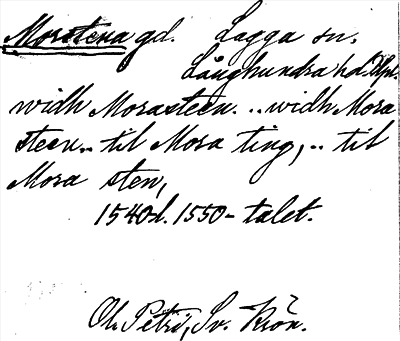 Morastena gd. Lagga sn.
Långhundra hd. Upl.
widh Morasteen. .. widh Mora
steen.. til Mora ting, .. til
Mora sten,
1540- o. 1550-talet.
Ol. Petri, Sv. Krön.